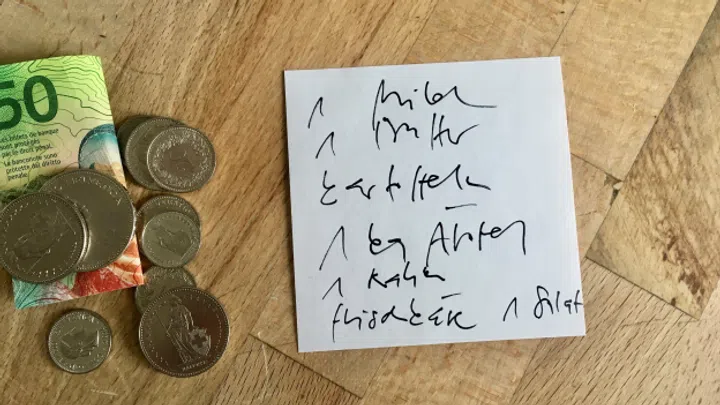 50
ces billets de banque
sont protégés
par le droit pénal.
Le banconote sono
protette dal diritto
penale.
1 Milch
1 Butter
Kartoffeln
1 kg Äpfel
1 Rahm
Frischkäse 1 Salat